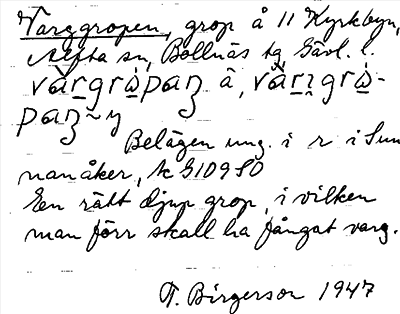 Varggropen, grop å 11 Kyrkbyn,
Alfta sn, Bollnäs tg Gävl. l.
vargrò̱paṉ â, várı̱grò̱-
paṉ~y
Belägen ung. i r i Sun
nanåker, tc G10980
En rätt djup grop, i vilken
man förr skall ha fångat varg.
T. Birgerson 1947